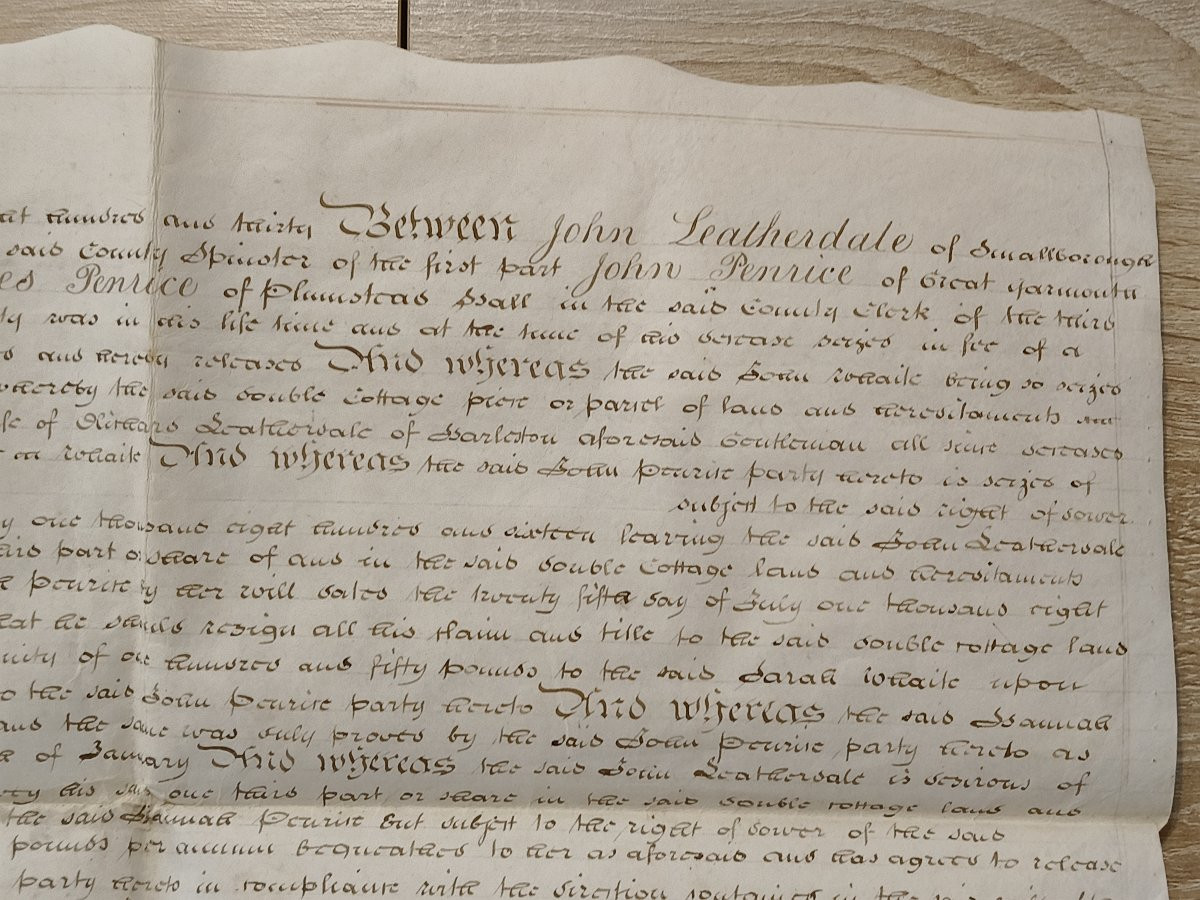 hundred and thirty Between John Leatherdale of Smallborough
said County Spinster of the first part John Penrice of Great Yarmouth
Penrice of Plumstead Hall in the said County Clerk of the third
was in his life time and at the time of his decease seized in fee of a
and hereby releases And whereas the said John Whaite being so seized
whereby the said double Cottage piece or parcel of land and hereditaments
of Leatherdale of Harleston aforesaid Gentleman all since deceased
Whaite And whereas the said John Penrice party hereto is seized of
subject to the said right of dower
one thousand eight hundred and sixteen leaving the said John Leatherdale
third part or share of and in the said double Cottage land and hereditaments
Penrice by her will dated the twenty fifth day of July one thousand eight
that he should resign all his claim and title to the said double cottage land
of one hundred and fifty pounds to the said Sarah Whaite upon
to the said John Penrice party hereto And whereas the said Hannah
and the same was duly proved by the said John Penrice party hereto as
of January And whereas the said John Leatherdale is desirous of
his said one third part or share in the said double cottage land and
the said Hannah Penrice But subject to the right of dower of the said
pounds per annum bequeathed to her as aforesaid and has agreed to release
party hereto in compliance with the direction contained in the